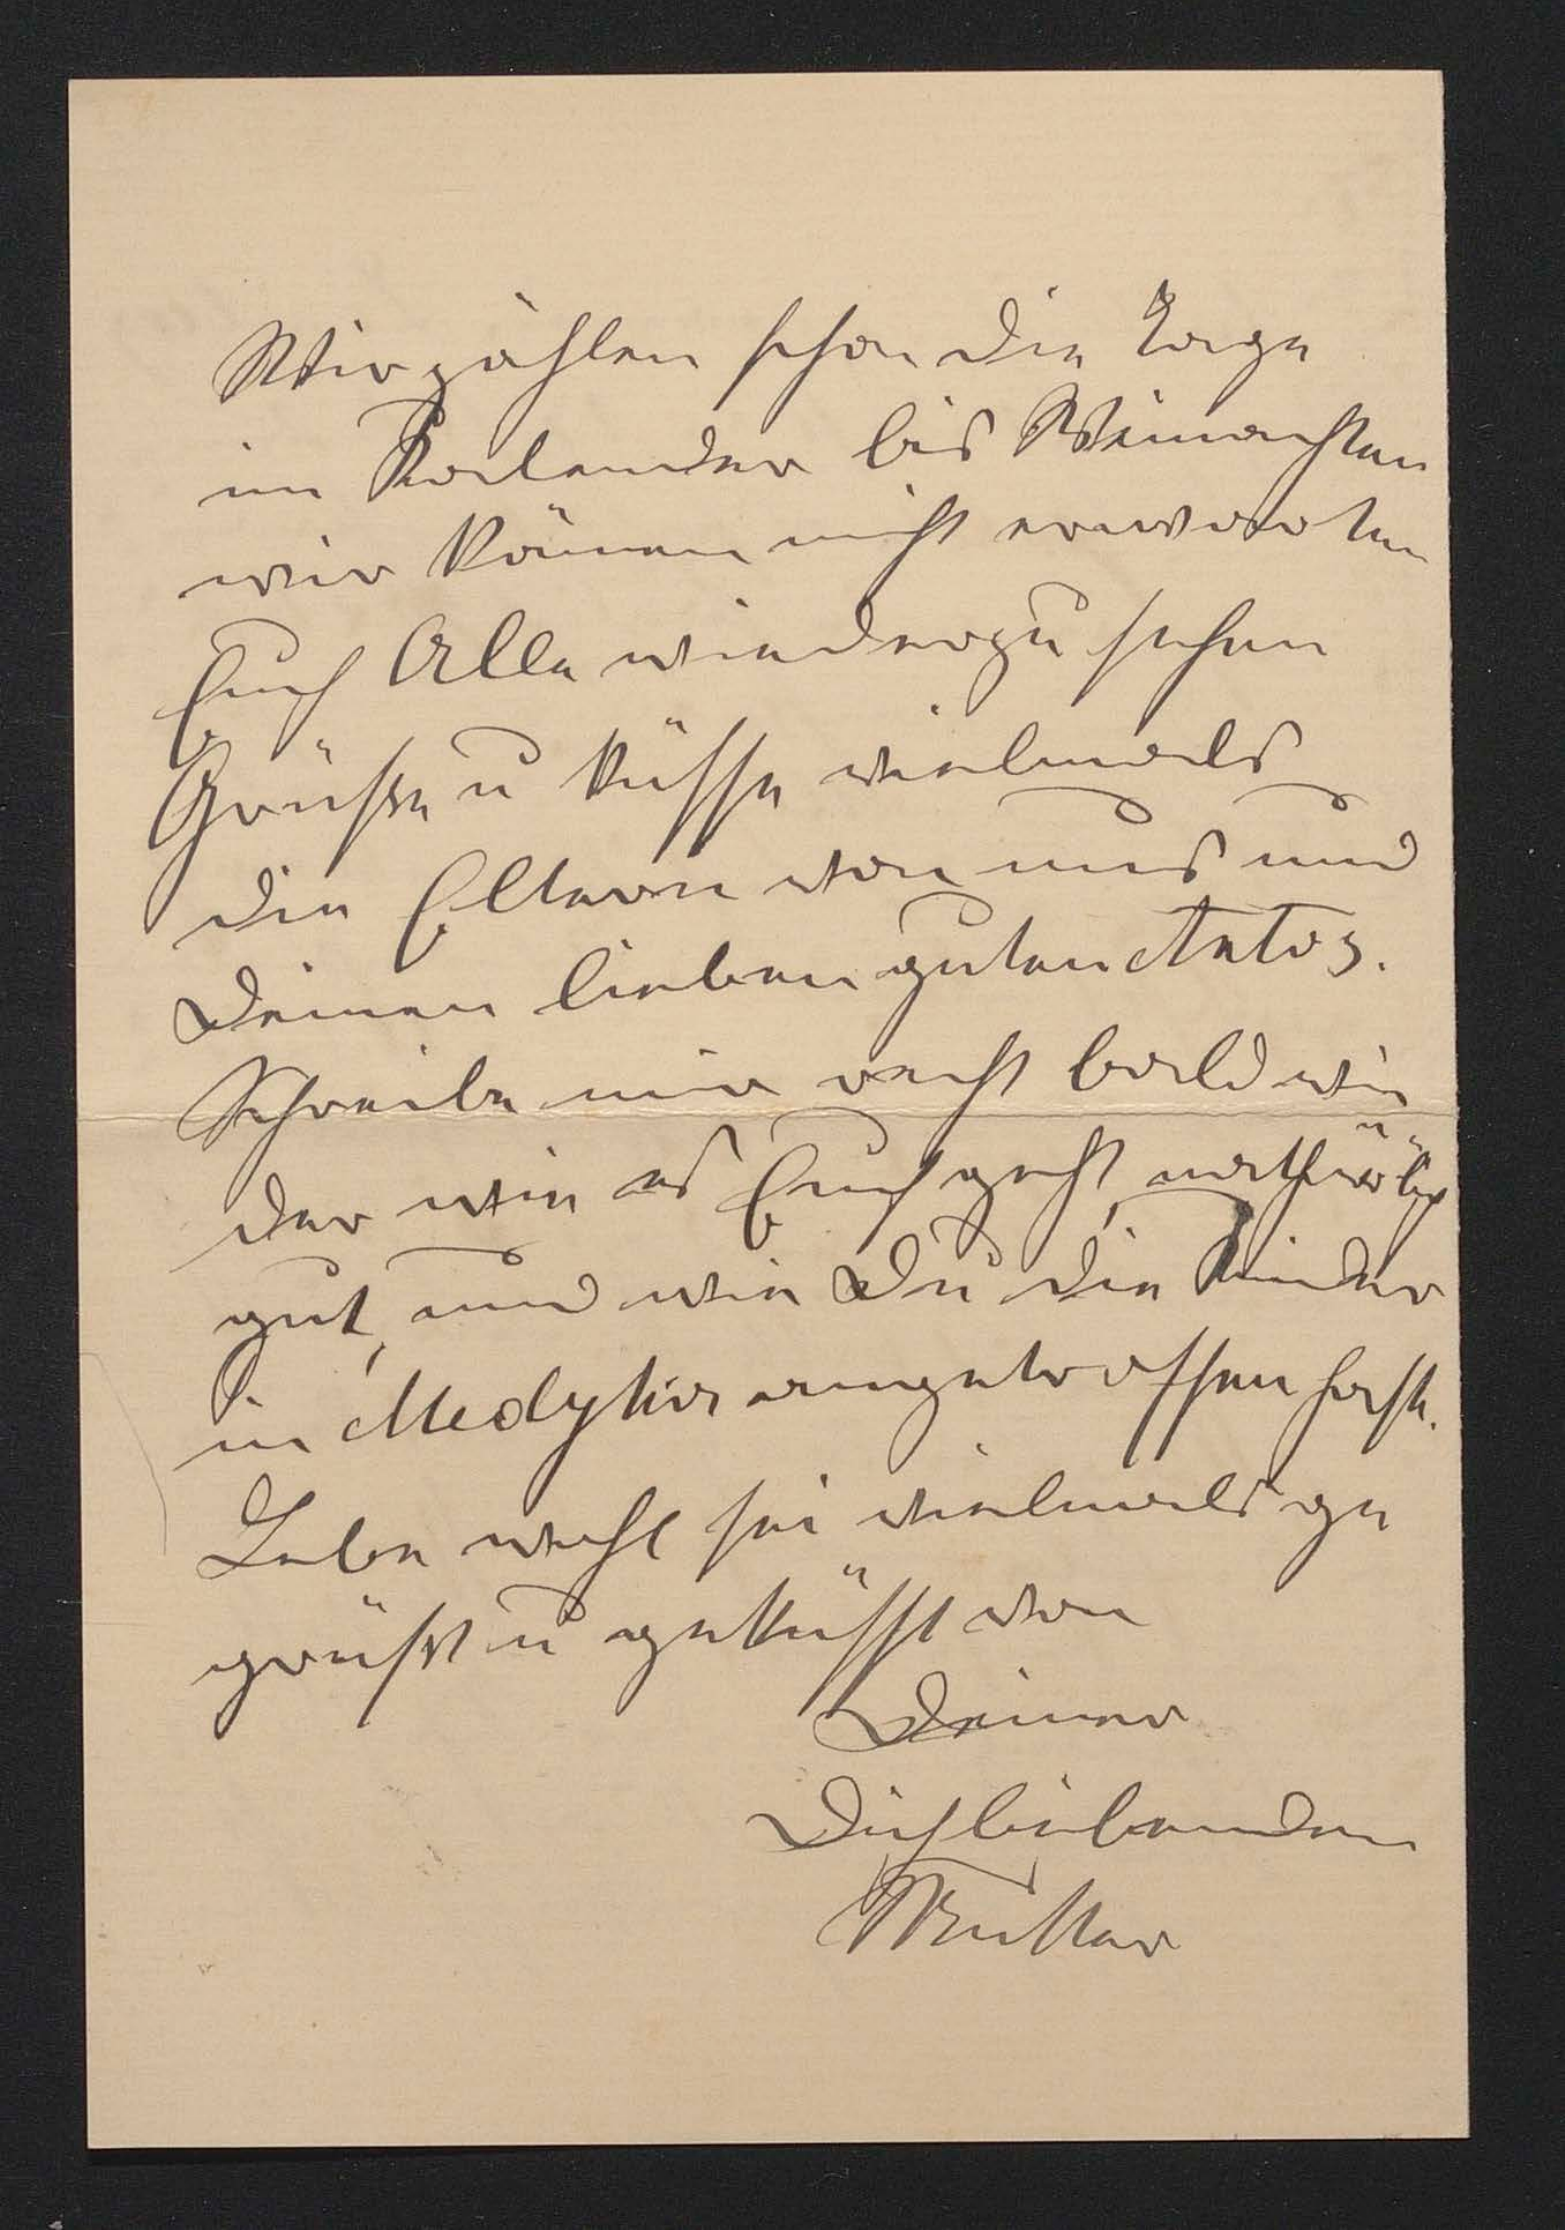 Wir zählen schon die Tage
im Kalender bis Weinachten
wir können nicht erwarten
Euch Alle wiederzu sehen
Grüße u küsse vielmals
die Eltern von uns und
Deinen lieben guten
Schreibe mir recht bald wie
der wie es Euch geht,
gut, und wie Du die Kinder
in Medyka angetroffen hast.
Lebe wohl sei vielmals ge
grüßt u geküsst von
Deiner
Dichliebenden
Mutter